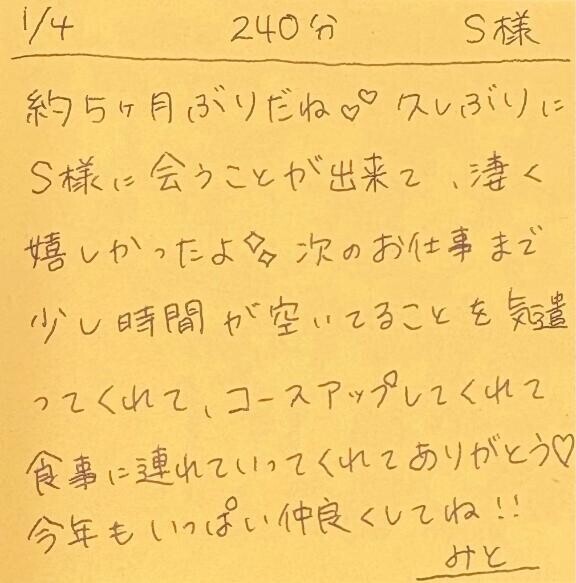 1/4 240分 S様
約5ヶ月ぶりだね♡♡ 久しぶりに
S様に会うことが出来て、凄く
嬉しかったよ✧✧ 次のお仕事まで
少し時間が空いてることを気遣
ってくれて、コースアップしてくれて
食事に連れていってくれてありがとう♡
今年もいっぱい仲良くしてね!!
みと